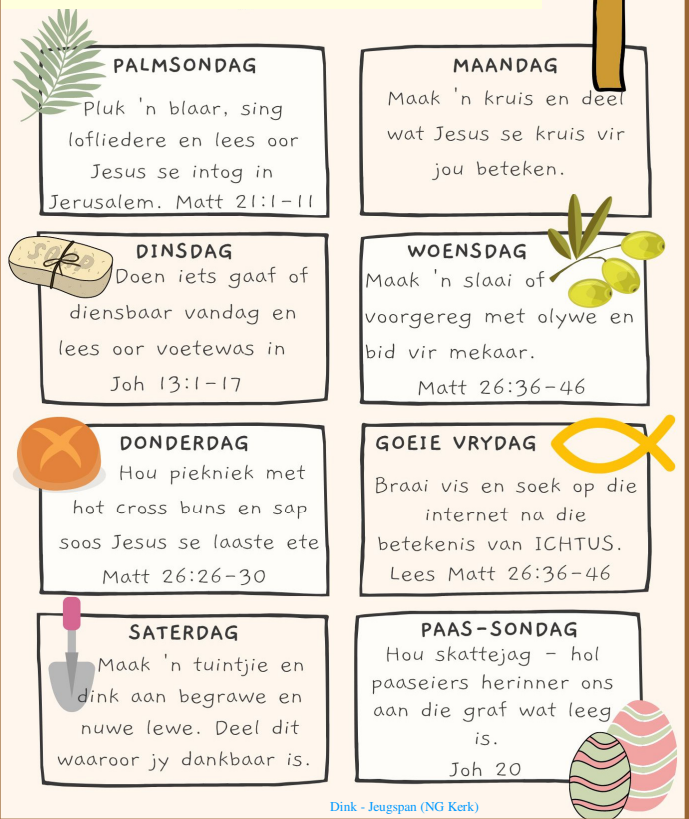 PALMSONDAG
Pluk 'n blaar, sing
lofliedere en lees oor
Jesus se intog in
Jerusalem. Matt 21:1-11
MAANDAG
Maak 'n kruis en deel
wat Jesus se kruis vir
jou beteken.
SOAP
DINSDAG
Doen iets gaaf of
diensbaar vandag en
lees oor voetewas in
Joh 13:1-17
WOENSDAG
Maak 'n slaai of
voorgereg met olywe en
bid vir mekaar.
Matt 26:36-46
DONDERDAG
Hou piekniek met
hot cross buns en sap
soos Jesus se laaste ete
Matt 26:26-30
GOEIE VRYDAG
Braai vis en soek op die
internet na die
betekenis van ICHTUS.
Lees Matt 26:36-46
SATERDAG
Maak 'n tuintjie en
dink aan begrawe en
nuwe lewe. Deel dit
waaroor jy dankbaar is.
PAAS-SONDAG
Hou skattejag - hol
paaseiers herinner ons
aan die graf wat leeg
is.
Joh 20
Dink - Jeugspan (NG Kerk)